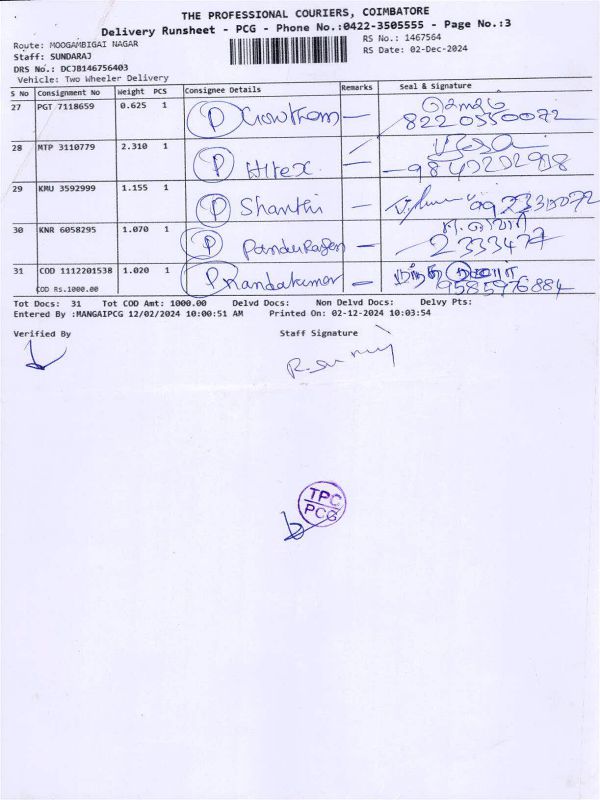 THE PROFESSIONAL COURIERS, COIMBATORE
Delivery Runsheet - PCG - Phone No.:0422-3505555 - Page No.:3
Route: MOOGAMBIGAI NAGAR RS No.: 1467564
Staff: SUNDARAJ RS Date: 02-Dec-2024
DRS No.: DCJB146756403
Vehicle: Two Wheeler Delivery
S No Consignment No Weight PCS Consignee Details Remarks Seal & Signature
27 PGT 7118659 0.625 1 P Gowtham —
8220550072
28 MTP 3110779 2.310 1 P Hitex —
29 KMU 3592999 1.155 1 P Shanthi —
30 KNR 6058295 1.070 1 P Panduragan —
2333477
31 COD 1112201538 1.020 1 P nandakumar —
COD Rs.1000.00 9585976884
Tot Docs: 31 Tot COD Amt: 1000.00 Delvd Docs: Non Delvd Docs: Delvy Pts:
Entered By :MANGAIPCG 12/02/2024 10:00:51 AM Printed On: 02-12-2024 10:03:54
Verified By Staff Signature
TPC
PCG